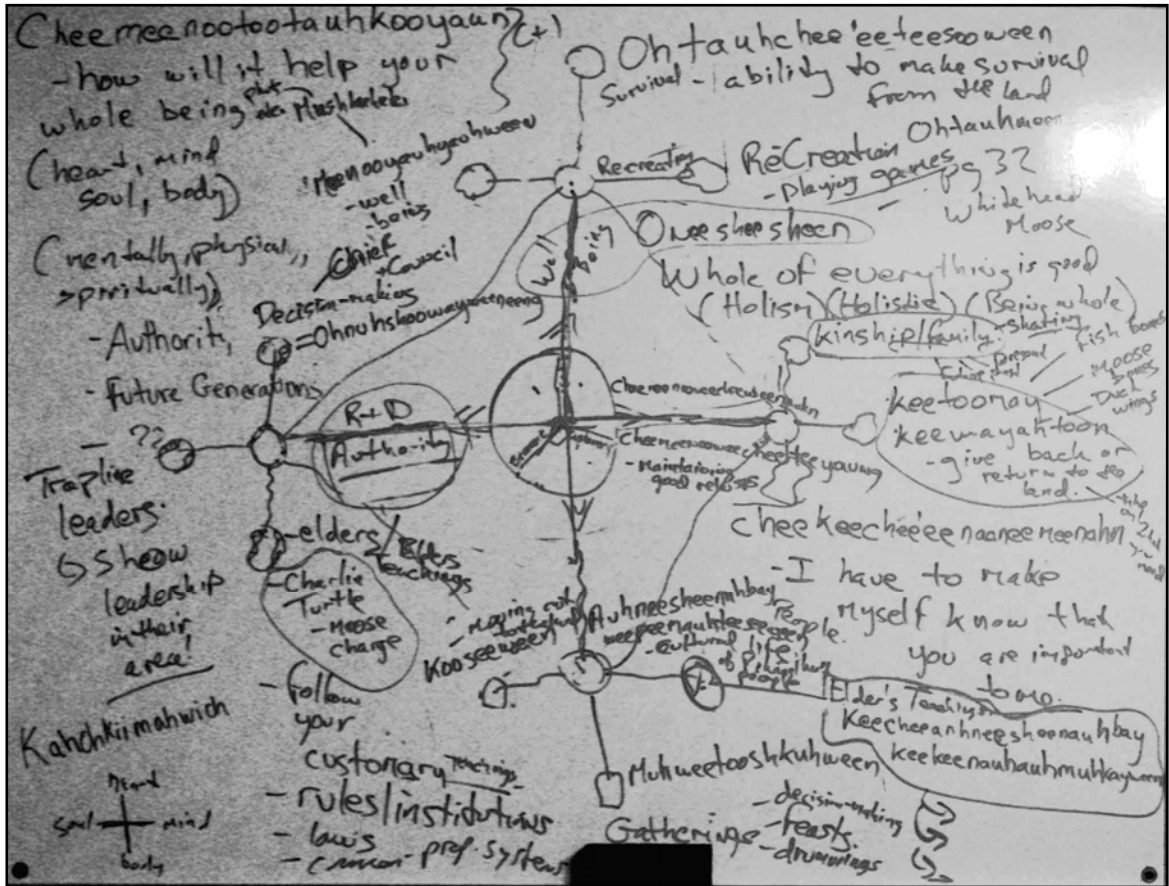 Cheemeenootootauhkooyaun
(+)
- how will it help your
whole being
(heart, mind
soul, body)
(mentally, physical,
spiritually)
- Authority
- Future Generations
- ??
Trapline
leaders.
Show
leadership
in their
area!
Kahchkiimahwich
heart
soul
mind
body
- well
- being
Chief
+ Council
Decision-making
= Ohnuhshoowayweeneeng
R+D
Authority
- elders
Elders
teachings
- Charlie
Turtle
- Moose
Charge
- Follow
your
customary
Teachings
- rules/institutions
- laws
- common-prop. systems
Ohtauhchee'eeteesooween
Survival - ability to make survival
from the land
Recreating
ReCreation
Ohtauhmeen
- playing games
pg 32
Whitehead
Moose
Well
being
Oneesheesheen
Whole of everything is good
(Holism) (Holistic) (Being whole)
kinship/family
- sharing
present
past
Fish bones
Moose
bones
Duck
wings
keetoomay
keewayaktoon
- give back or
return to the
land.
- Maintaining
good
cheekeechee'eenaaneemeenahn
- I have to make
myself know that
you are important
to me.
Kooseeween
Auhneesheenahbay
People.
- cultural life
of Pikangikum
people
Elder's Teachings
Keecheeanhneesheenauhbay
keekeenauhauhmuhkayween
Muhweetooshkuhween
Gatherings
- decision-making
- feasts
- drummings